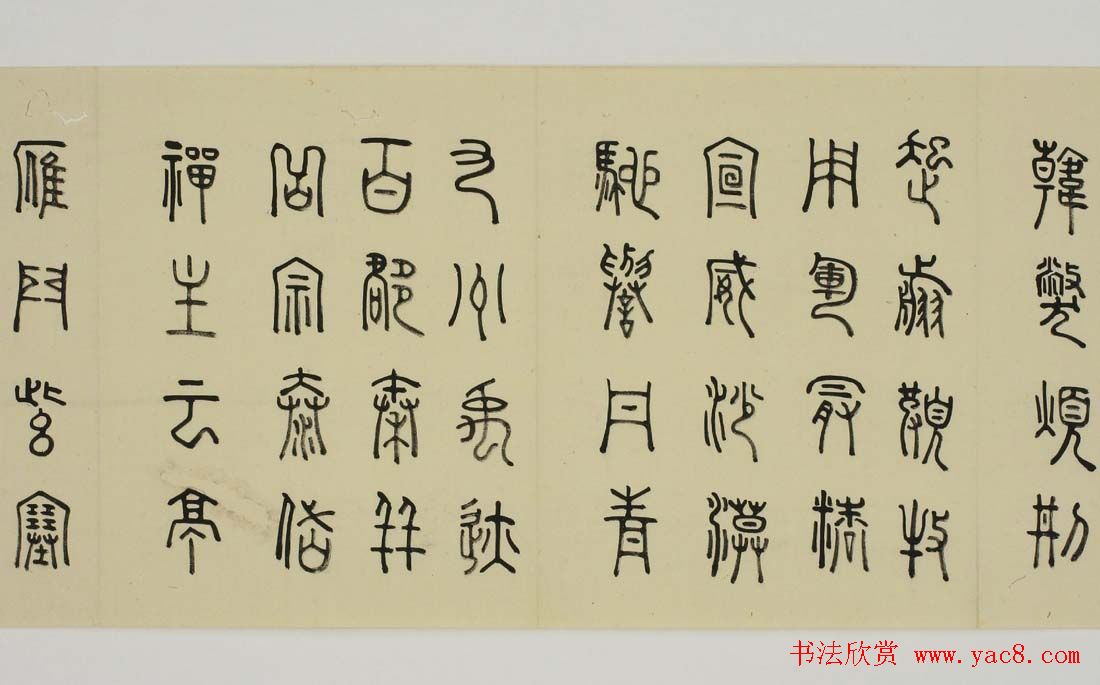 韓獘煩刑
起翦頗牧
用軍最精
宣威沙漠
馳譽丹青
九州禹跡
百郡秦并
岳宗泰岱
禪主云亭
雁門紫塞
书法欣赏 www.yac8.com